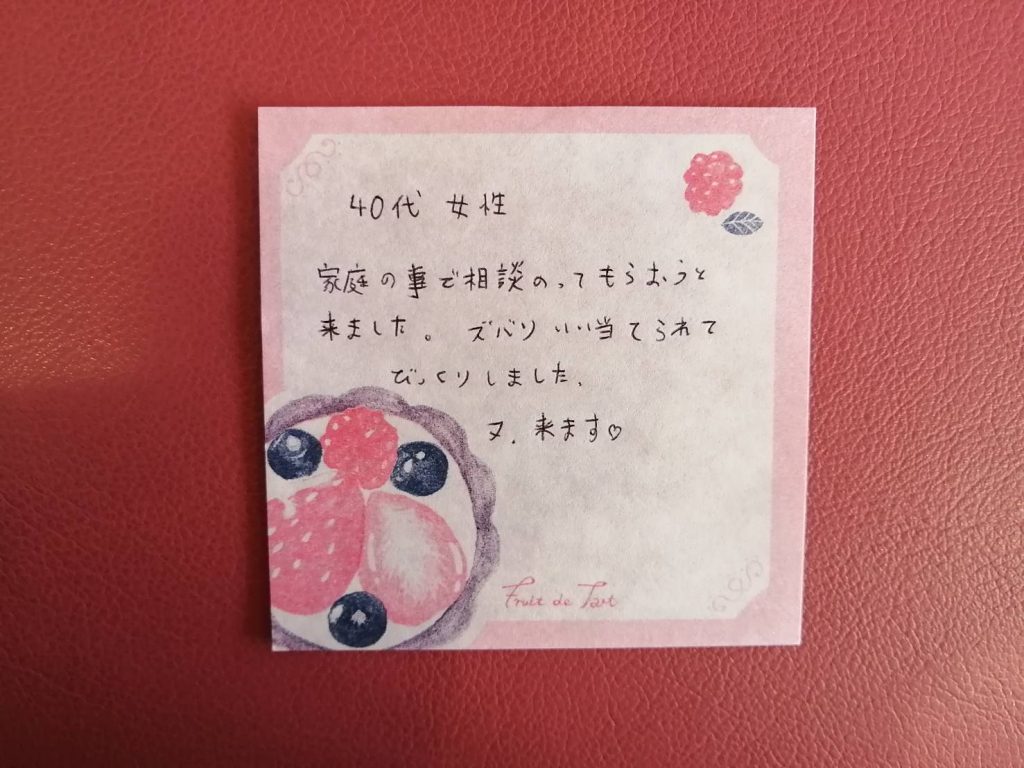 40代 女性
家庭の事で相談のってもらおうと
来ました。 ズバリ いい当てられて
びっくりしました、
又、来ます♡
Fruit de Tart